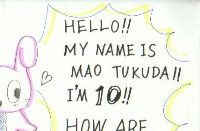 HELLO!!
MY NAME IS
MAO TUKUDA!!
I'M 10!!
HOW ARE